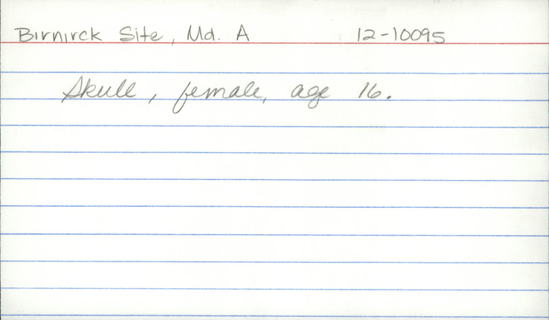 Birnirck Site, Md. A 12-10095
Skull, female, age 16.